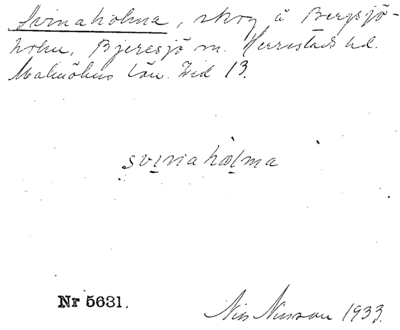 Svinaholma, skog å Bergsjö-
holm, Bjeresjö sn. Herrestads hd.
Malmöhus län. Zid 13.
svinahọlma
Nr 5631.
Nils Nilsson 1933.